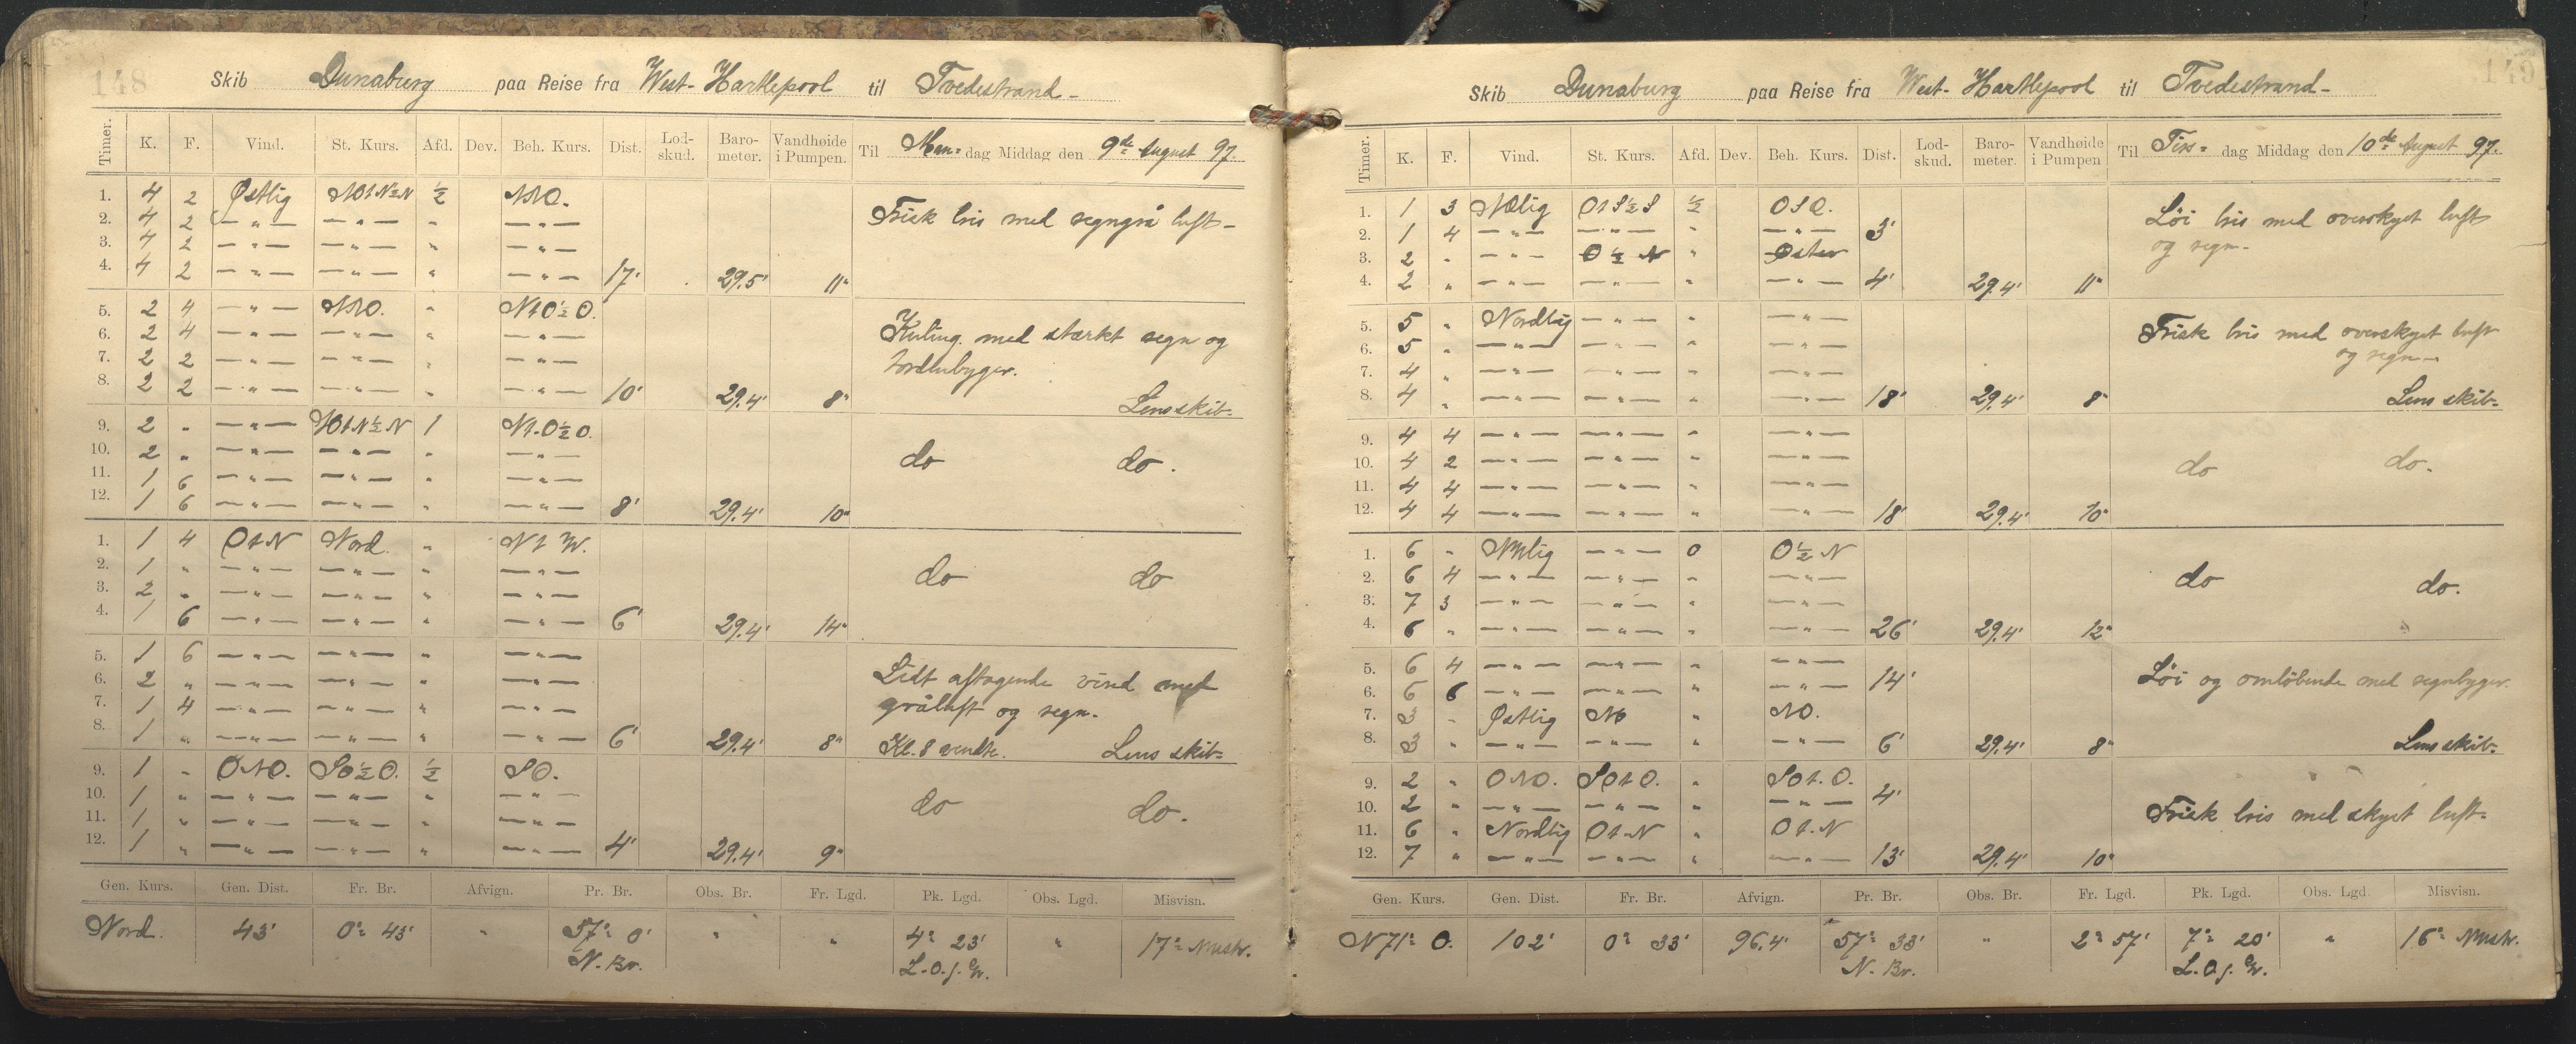 148
Skib Dunaburg paa Reise fra West-Hartlepool til Tvedestrand-
Timer. K. F. Vind. St. Kurs. Afd. Dev. Beh. Kurs. Dist. Lod-skud. Baro-meter. Vandhøide i Pumpen. Til Man= dag Middag den 9de August 97.
1. 4 2 Østlig NOtN½N ½ NNO.
2. 4 2 — " — — " — " — " — Frisk bris med regngrå luft-
3. 4 2 — " — — " — " — " —
4. 4 2 — " — — " — " — " — 17' 29.5' 11"
5. 2 4 — " — NNO. " NtO½O.
6. 2 4 — " — — " — " — " — Kuling med stærkt regn og
7. 2 2 — " — — " — " — " — tordenbyger.
8. 2 2 — " — — " — " — " — 10' 29.4' 8" Lens skib-
9. 2 " — " — NOtN½N 1 Nt-O½O.
10. 2 " — " — — " — " — " — do do.
11. 1 6 — " — — " — " — " —
12. 1 6 — " — — " — " — " — 8' 29.4' 10"
1. 1 4 OtN Nord. " Nt W.
2. 1 " — " — — " — " — " — do do
3. 2 " — " — — " — " — " —
4. 1 6 — " — — " — " — " — 6' 29.4' 14"
5. 1 6 — " — — " — " — " —
6. 2 " — " — — " — " — " — Lidt aftagende vind med
7. 1 4 — " — — " — " — " — gråluft og regn.
8. 1 " — " — — " — " — " — 6' 29.4' 8" Kl. 8 vendte. Lens skib-
9. 1 " ONO. SO½O. ½ SO.
10. 1 " — " — — " — " — " — do do.
11. 1 " — " — — " — " — " —
12. 1 " — " — — " — " — " — 4' 29.4' 9"
Gen. Kurs. Gen. Dist. Fr. Br. Afvign. Pr. Br. Obs. Br. Fr. Lgd. Pk. Lgd. Obs. Lgd. Misvisn.
Nord. 43' 0° 43' " 57° 0' " " 4° 23' " 17° Nustv.
N. Br. L.O.f. Gr.
149
Skib Dunaburg paa Reise fra West-Hartlepool til Tvedestrand-
Timer. K. F. Vind. St. Kurs. Afd. Dev. Beh. Kurs. Dist. Lod-skud. Baro-meter. Vandhøide i Pumpen Til Tirs= dag Middag den 10de August 97.
1. 1 3 NOlig OtS½S ½ OSO.
2. 1 4 — " — — " — " — " — 3' Løi bris med overskyet luft
3. 2 " — " — O½N " Øster og regn-
4. 2 " — " — — " — " — " — 4' 29.4' 11"
5. 5 " Nordlig — " — " — " —
6. 5 " — " — — " — " — " — Frisk bris med overskyet luft
7. 4 " — " — — " — " — " — og regn-
8. 4 " — " — — " — " — " — 18' 29.4' 8" Lens skib-
9. 4 4 — " — — " — " — " —
10. 4 2 — " — — " — " — " — do do.
11. 4 4 — " — — " — " — " —
12. 4 4 — " — — " — " — " — 18' 29.4' 10"
1. 6 " NNlig — " — 0 O½N
2. 6 4 — " — — " — " — " — do do.
3. 7 3 — " — — " — " — " —
4. 6 " — " — — " — " — " — 26' 29.4' 12"
5. 6 4 — " — — " — " — " —
6. 6 6 — " — — " — " — " — 14' Løi og omløbende med regnbyger.
7. 3 " Østlig NO " NO.
8. 3 " — " — — " — " — " — 6' 29.4' 8" Lens skib-
9. 2 " ONO. SOtO. " SOt.O.
10. 2 " — " — — " — " — " — 4'
11. 6 " Nordlig Ot-N " Ot.N Frisk bris med skyet luft-
12. 7 " — " — — " — " — " — 13' 29.4' 10"
Gen. Kurs. Gen. Dist. Fr. Br. Afvign. Pr. Br. Obs. Br. Fr. Lgd. Pk. Lgd. Obs. Lgd. Misvisn.
N 71° O. 102' 0° 33' 96.4' 57° 33' " 2° 57' 7° 20' " 16° Nustv.
N. Br. L.O.f. Gr.